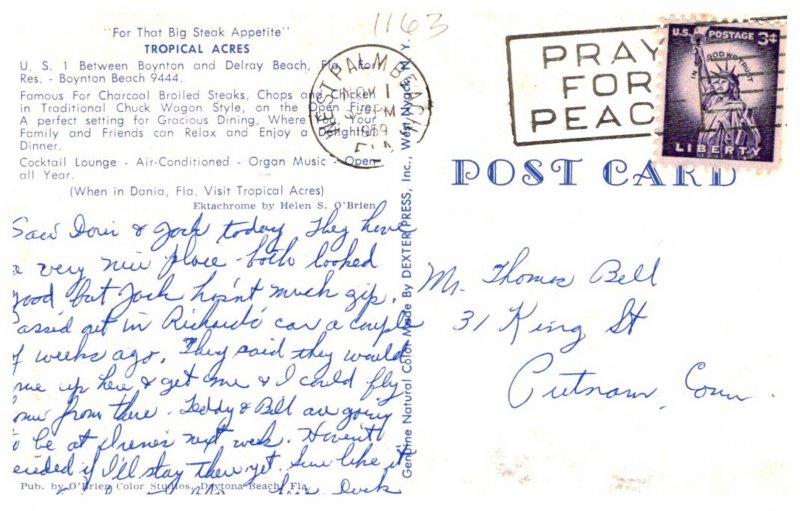 1163
"For That Big Steak Appetite"
TROPICAL ACRES
U. S. 1 Between Boynton and Delray Beach, Fla. for
Res. - Boynton Beach 9444.
Famous For Charcoal Broiled Steaks, Chops and Chicken
in Traditional Chuck Wagon Style, on the Open Fire.
A perfect setting for Gracious Dining, Where You, Your
Family and Friends can Relax and Enjoy a Delightful
Dinner.
Cocktail Lounge - Air-Conditioned - Organ Music - Open
all Year.
(When in Dania, Fla. Visit Tropical Acres)
Ektachrome by Helen S. O'Brien
Saw Doris & Jack today. They have
a very nice place - both looked
good but Jack hasn't much zip.
Passed out in Richards' car a couple
of weeks ago. They said they would
come up here & get me & I could fly
home from there. Teddy & Bill are going
to be at Irene's next week. Haven't
decided if I'll stay there yet. Sure like it
Pub. by O'Brien Color Studios, Daytona Beach, Fla.
Genuine Natural Color Made By DEXTER PRESS, Inc., West Nyack, N. Y.
WEST PALM BEACH
NOV 1
PM
1959
FLA.
PRAY
FOR
PEACE
U.S. POSTAGE 3¢
IN GOD WE TRUST
LIBERTY
POST CARD
Mr. Thomas Bell
31 King St
Putnam, Conn.